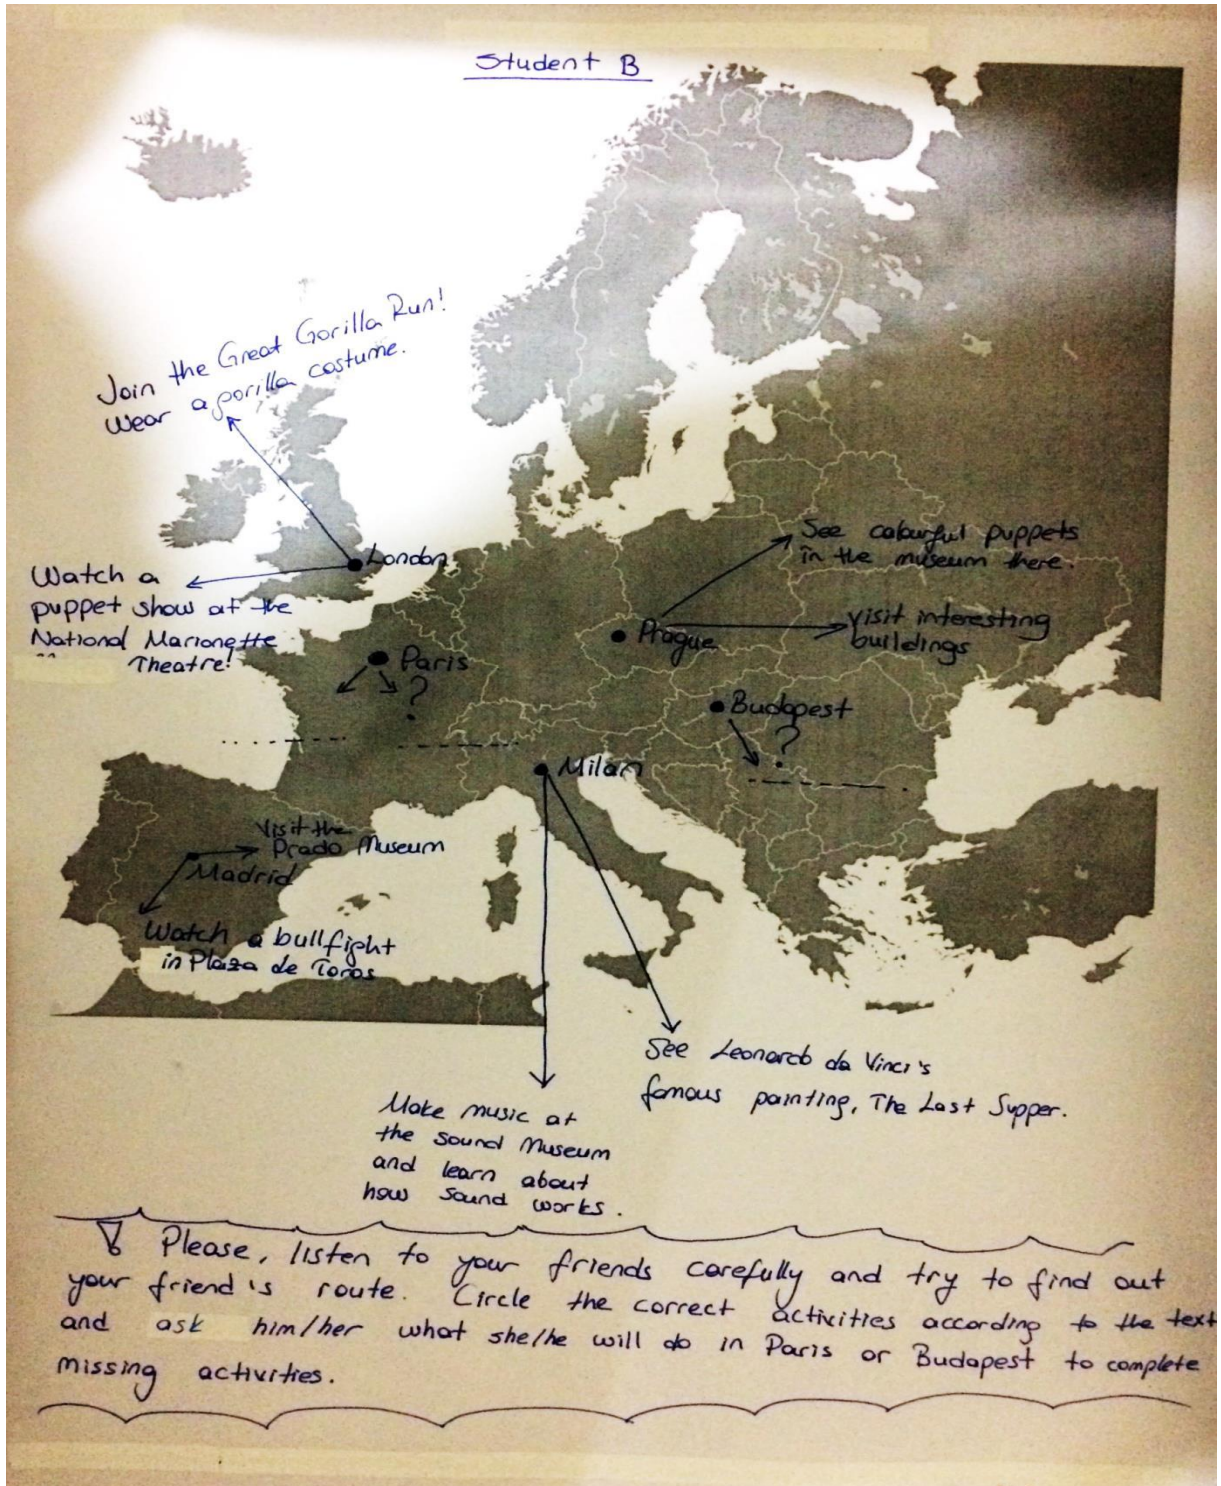 Student B
Join the Great Gorilla Run!
Wear a gorilla costume.
London
Watch a
puppet show at the
National Marionette
Theatre!
See colourful puppets
in the museum there.
Prague
visit interesting
buildings
Paris
?
Budapest
?
Milan
Visit the
Prado Museum
Madrid
Watch a bullfight
in Plaza de Toros
See Leonardo da Vinci's
famous painting, The Last Supper.
Make music at
the Sound Museum
and learn about
how sound works.
Please, listen to your friends carefully and try to find out
your friend's route. Circle the correct activities according to the text
and ask him/her what she/he will do in Paris or Budapest to complete
missing activities.